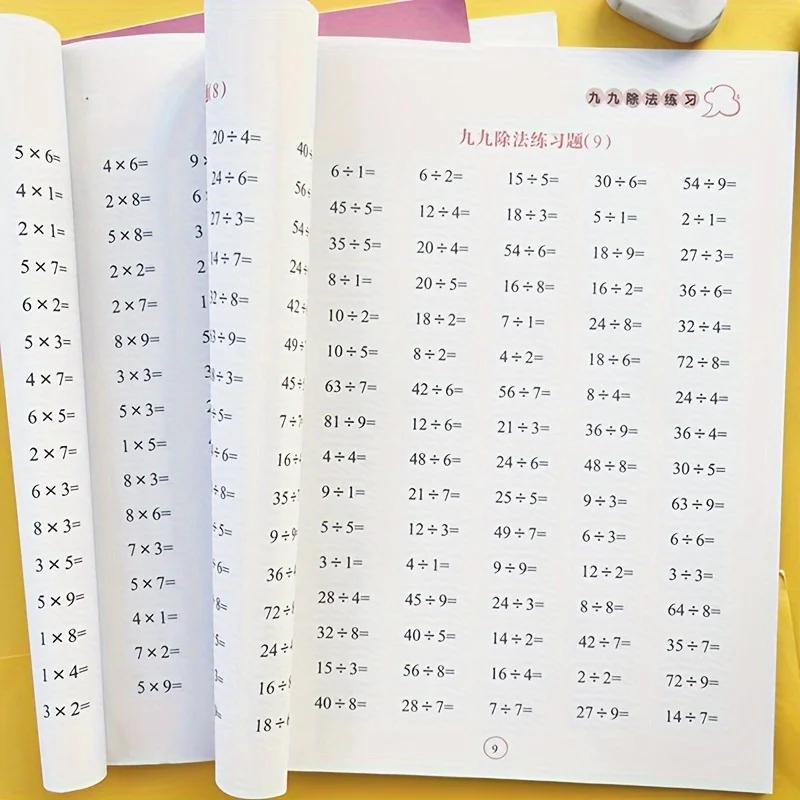 5×6=
4×1=
2×1=
5×7=
6×2=
5×3=
4×7=
6×5=
2×7=
6×3=
8×3=
3×5=
5×9=
1×8=
1×4=
3×2=
4×6=
2×8=
5×8=
2×2=
2×7=
8×9=
3×3=
5×3=
1×5=
8×3=
8×6=
7×3=
5×7=
4×1=
7×2=
5×9=
(8)
20÷4=
24÷6=
27÷3=
14÷7=
九九除法练习
九九除法练习题(9)
6÷1= 6÷2= 15÷5= 30÷6= 54÷9=
45÷5= 12÷4= 18÷3= 5÷1= 2÷1=
35÷5= 20÷4= 54÷6= 18÷9= 27÷3=
8÷1= 20÷5= 16÷8= 16÷2= 36÷6=
10÷2= 18÷2= 7÷1= 24÷8= 32÷4=
10÷5= 8÷2= 4÷2= 18÷6= 72÷8=
63÷7= 42÷6= 56÷7= 8÷4= 24÷4=
81÷9= 12÷6= 21÷3= 36÷9= 36÷4=
4÷4= 48÷6= 24÷6= 48÷8= 30÷5=
9÷1= 21÷7= 25÷5= 9÷3= 63÷9=
5÷5= 12÷3= 49÷7= 6÷3= 6÷6=
3÷1= 4÷1= 9÷9= 12÷2= 3÷3=
28÷4= 45÷9= 24÷3= 8÷8= 64÷8=
32÷8= 40÷5= 14÷2= 42÷7= 35÷7=
15÷3= 56÷8= 16÷4= 2÷2= 72÷9=
40÷8= 28÷7= 7÷7= 27÷9= 14÷7=
9